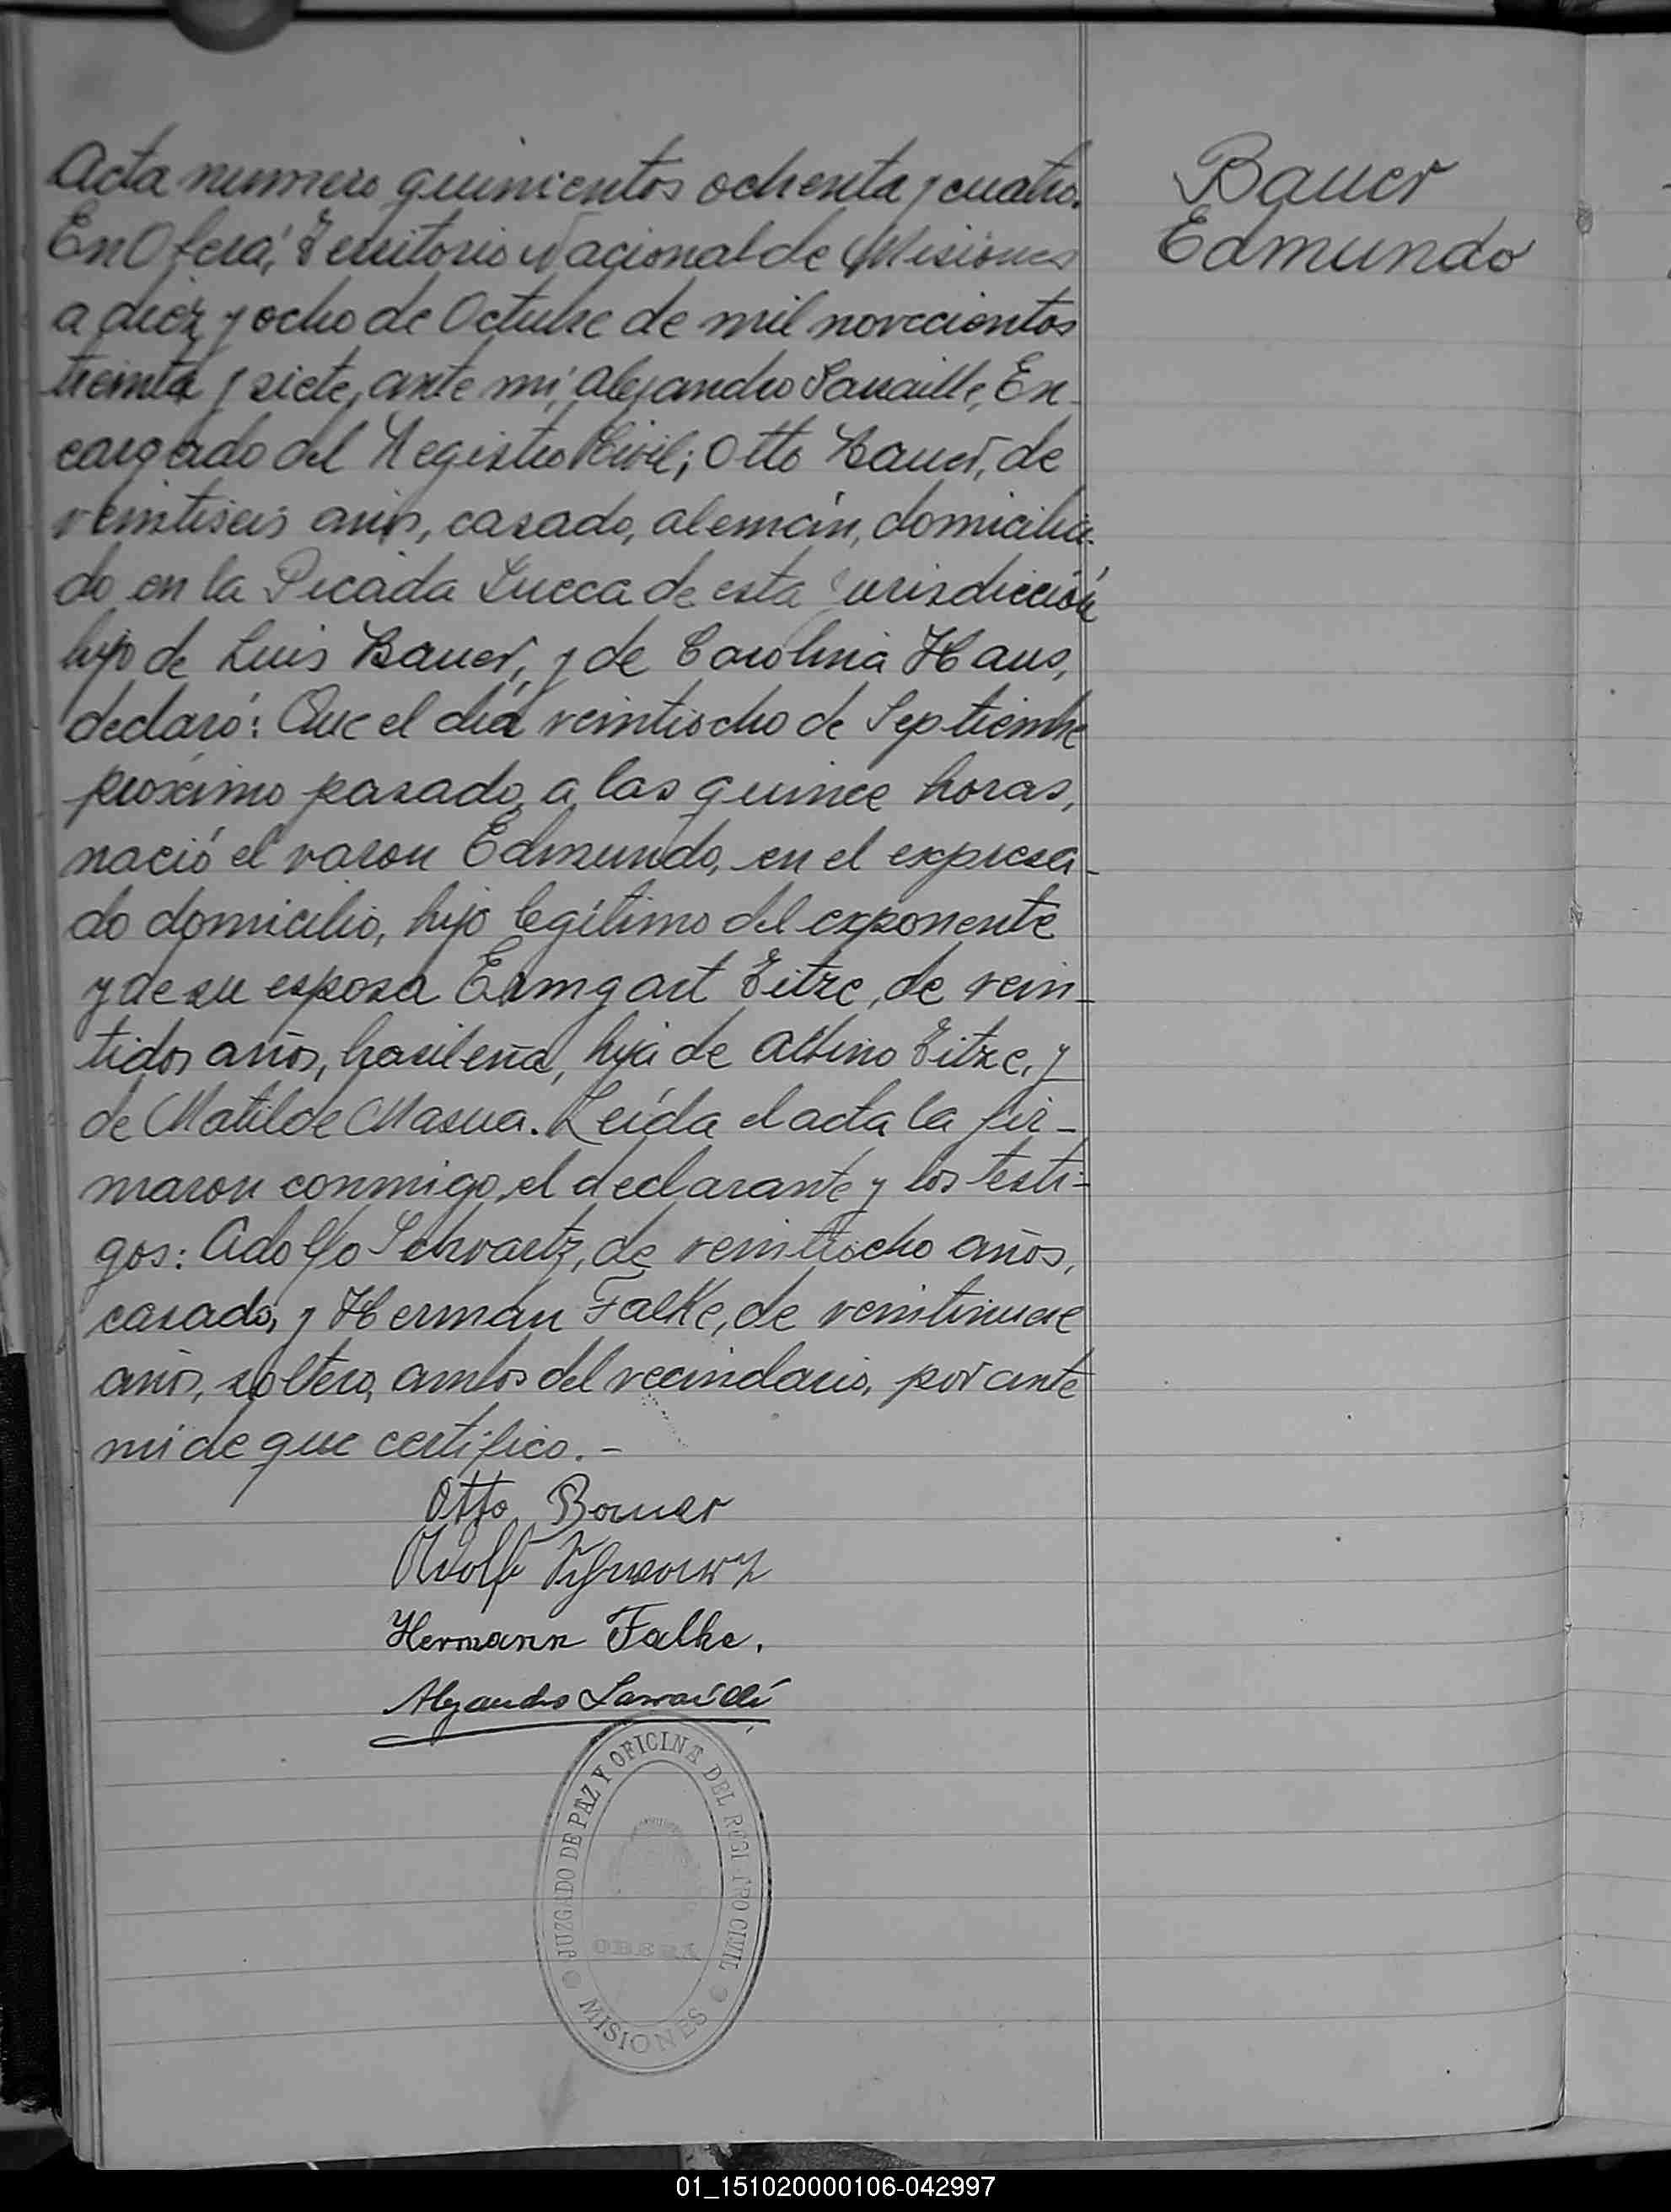 Acta numero quinientos ochenta y cuatro.
En Oberá, Territorio Nacional de Misiones
a diez y ocho de Octubre de mil novecientos
treinta y siete, ante mi, Alejandro Sarraillé, En-
cargado del Registro Civil; Otto Bauer, de
veintiseis años, casado, alemán, domicilia-
do en la Picada Sueca de esta jurisdicción
hijo de Luis Bauer, y de Carolina Haus,
declaró: Que el día veintiocho de Septiembre
proximo pasado, a las quince horas,
nació el varon Edmundo, en el expresa-
do domicilio, hijo legítimo del exponente
y de su esposa Ermgart Titze, de vein-
tidos años, brasileña, hija de Albino Titze, y
de Matilde. Leída el acta la fir-
maron conmigo, el declarante y los testi-
gos: Adolfo Schwartz, de veintiocho años,
casado, y Herman Falke, de veintinueve
años, soltero, ambos del vecindario, por ante
mi de que certifico.-
Otto Bauer
Adolf
Hermann Falke.
Alejandro Sarraillé
JUZGADO DE PAZ Y OFICINA DEL REGISTRO CIVIL
OBERA
MISIONES
Bauer
Edmundo
01_151020000106-042997